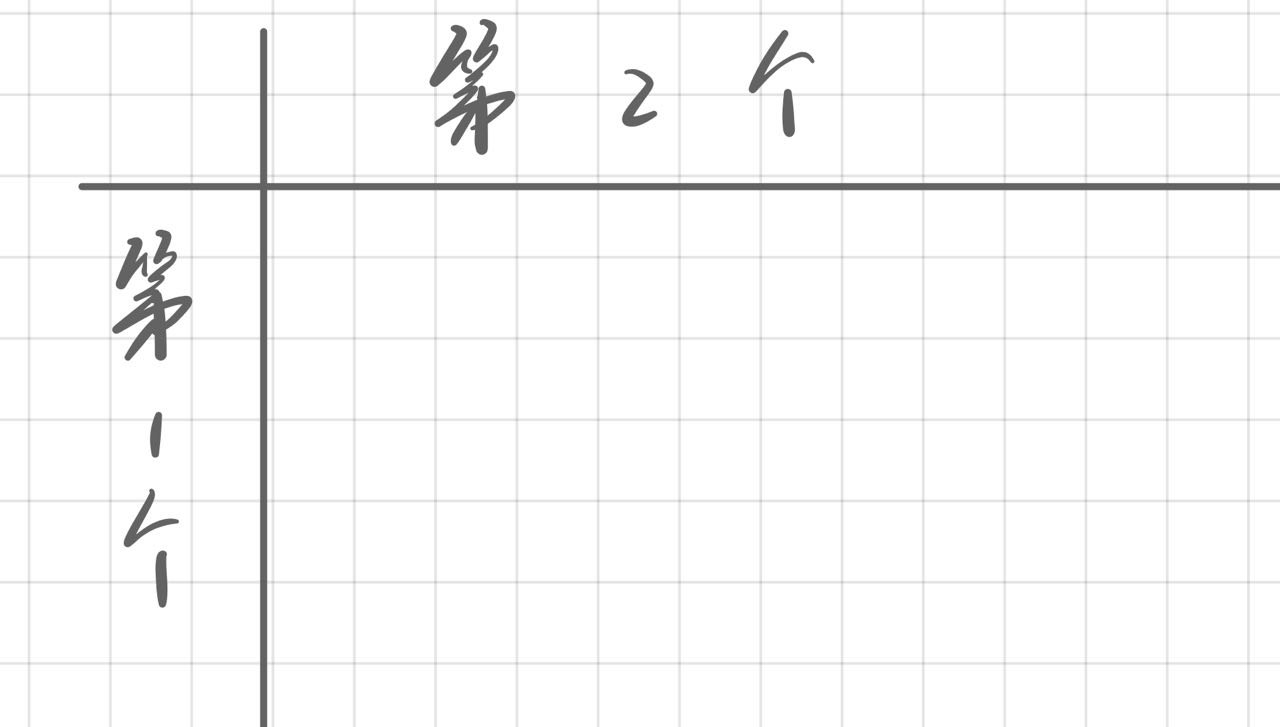 第2个
第1个